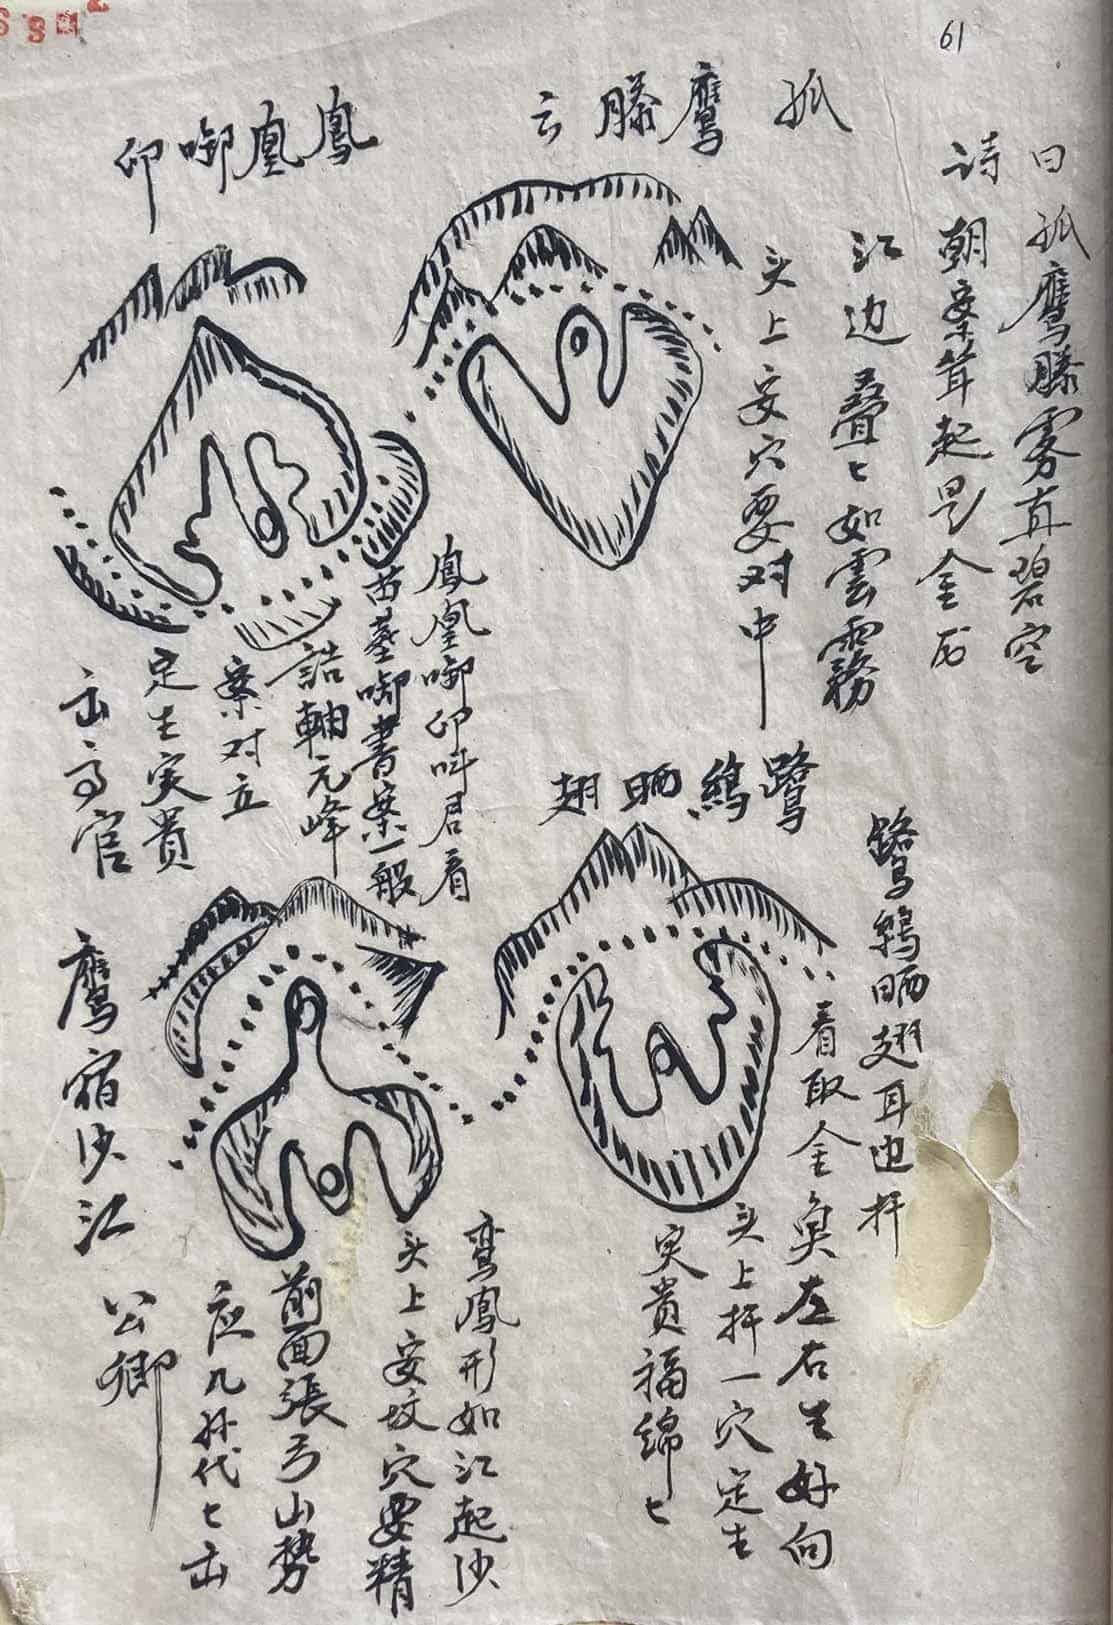 61
孤鹰滕云
诗曰
孤鹰滕雾直碧空
朝案耸起是金
江边叠七如雲霧
头上安穴要对中
鳳凰啣印
鳳凰啣印叫君看
苗墓啣書案一般
誥軸元峰
案对立
定生突贵
出高官
鷺鷀晒翅
鷺鷀晒翅耳边扦
看取金奐左右生好向
头上扦一穴定生
突贵福綿七
鹰宿沙江
鸾鳳形如江起沙
头上安坟穴要精
前面張弓山勢
应几孙代七出
公卿